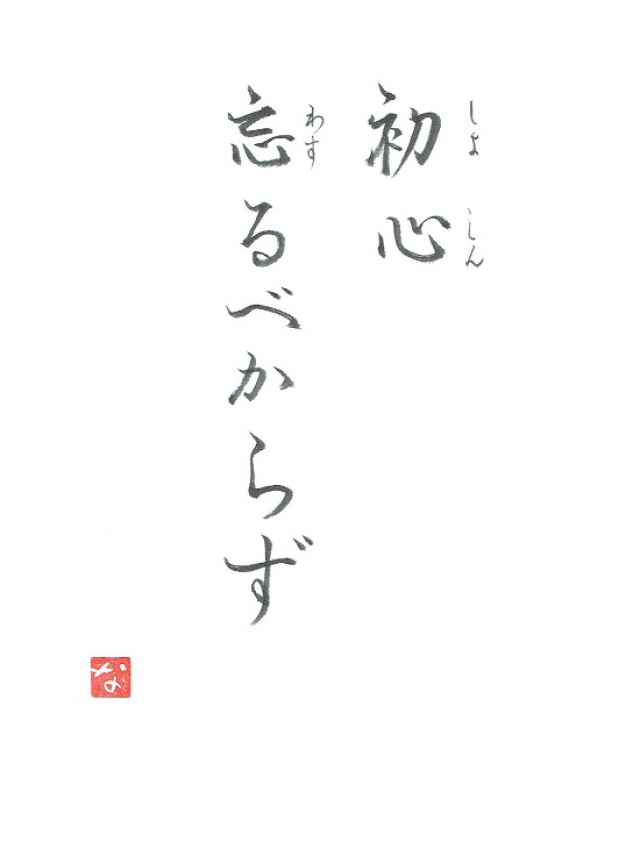 しよ しん
初心
わす
忘るべからず
な